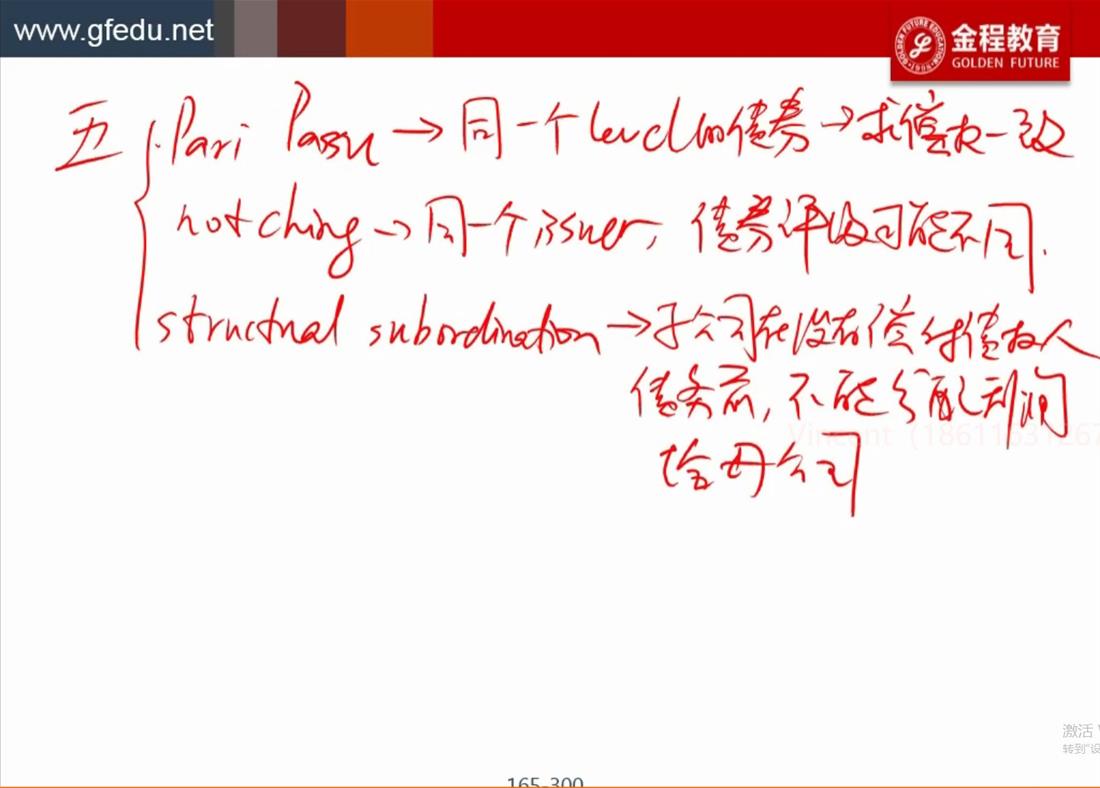 www.gfedu.net
金程教育
GOLDEN FUTURE
五 { Pari Passu → 同一个level的债券 → 求偿权一致
notching → 同一个issuer, 债券评级可能不同.
structual subordination → 子公司在没有偿付债权人
债务前, 不能分配利润
给母公司
Vincent (18611631267
激活
转到"设
165-300